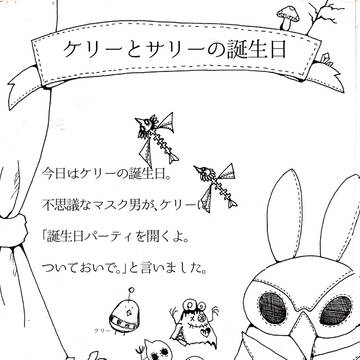 ケリーとサリーの誕生日
今日はケリーの誕生日。
不思議なマスク男が、ケリーに
「誕生日パーティを開くよ。
ついておいで。」と言いました。
ケリー